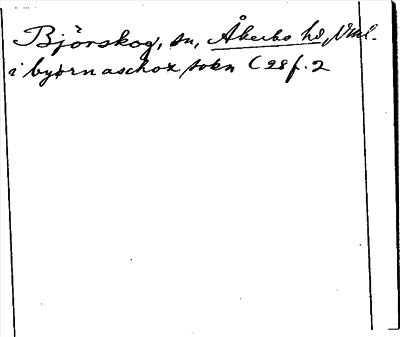 Björskog, sn, Åkerbo hd, Vml.
i byørn aschox sokn C 28 f. 2